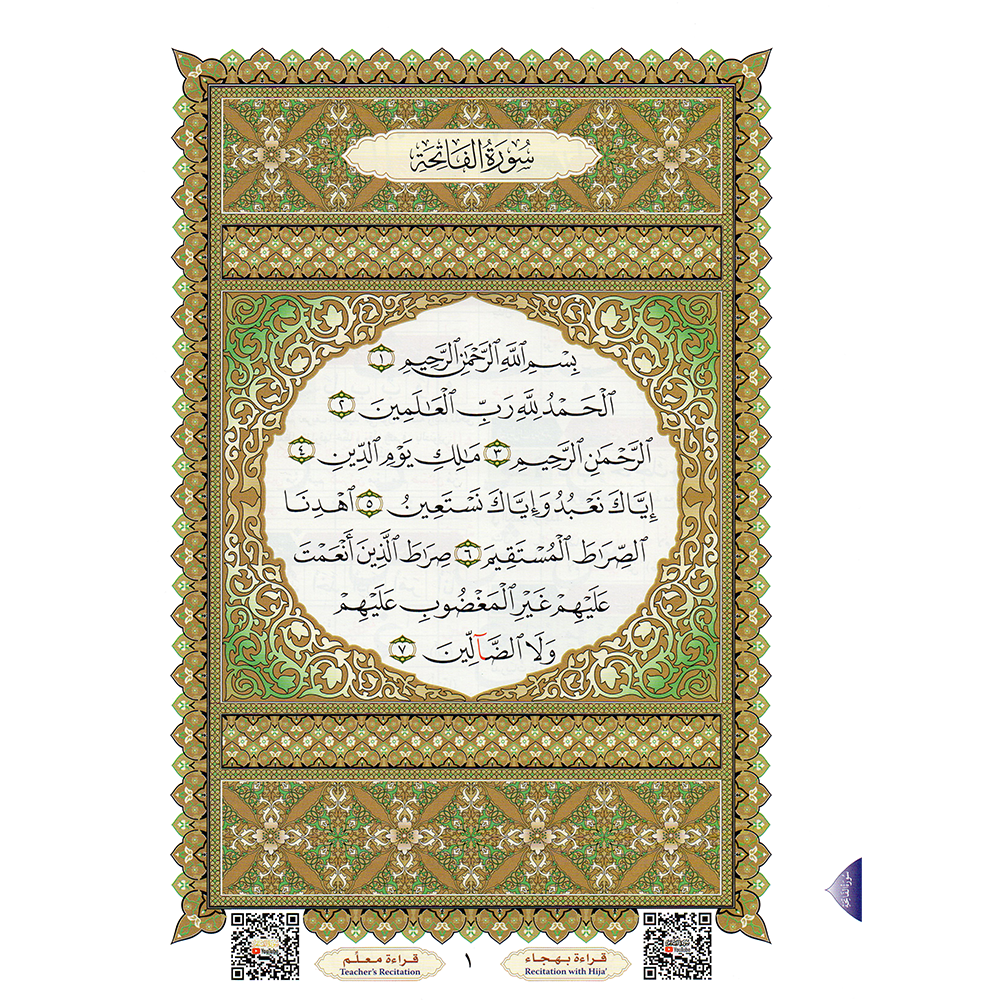 سُورَةُ الفَاتِحَةِ
بِسْمِ ٱللَّهِ ٱلرَّحْمَٰنِ ٱلرَّحِيمِ ١
ٱلْحَمْدُ لِلَّهِ رَبِّ ٱلْعَٰلَمِينَ ٢
ٱلرَّحْمَٰنِ ٱلرَّحِيمِ ٣ مَٰلِكِ يَوْمِ ٱلدِّينِ ٤
إِيَّاكَ نَعْبُدُ وَإِيَّاكَ نَسْتَعِينُ ٥ ٱهْدِنَا
ٱلصِّرَٰطَ ٱلْمُسْتَقِيمَ ٦ صِرَٰطَ ٱلَّذِينَ أَنْعَمْتَ
عَلَيْهِمْ غَيْرِ ٱلْمَغْضُوبِ عَلَيْهِمْ
وَلَا ٱلضَّآلِّينَ ٧
سُورَةُ الفَاتِحَةِ
قراءة بهجاء
Recitation with Hija'
١
قراءة معلّم
Teacher's Recitation
YouTube
YouTube